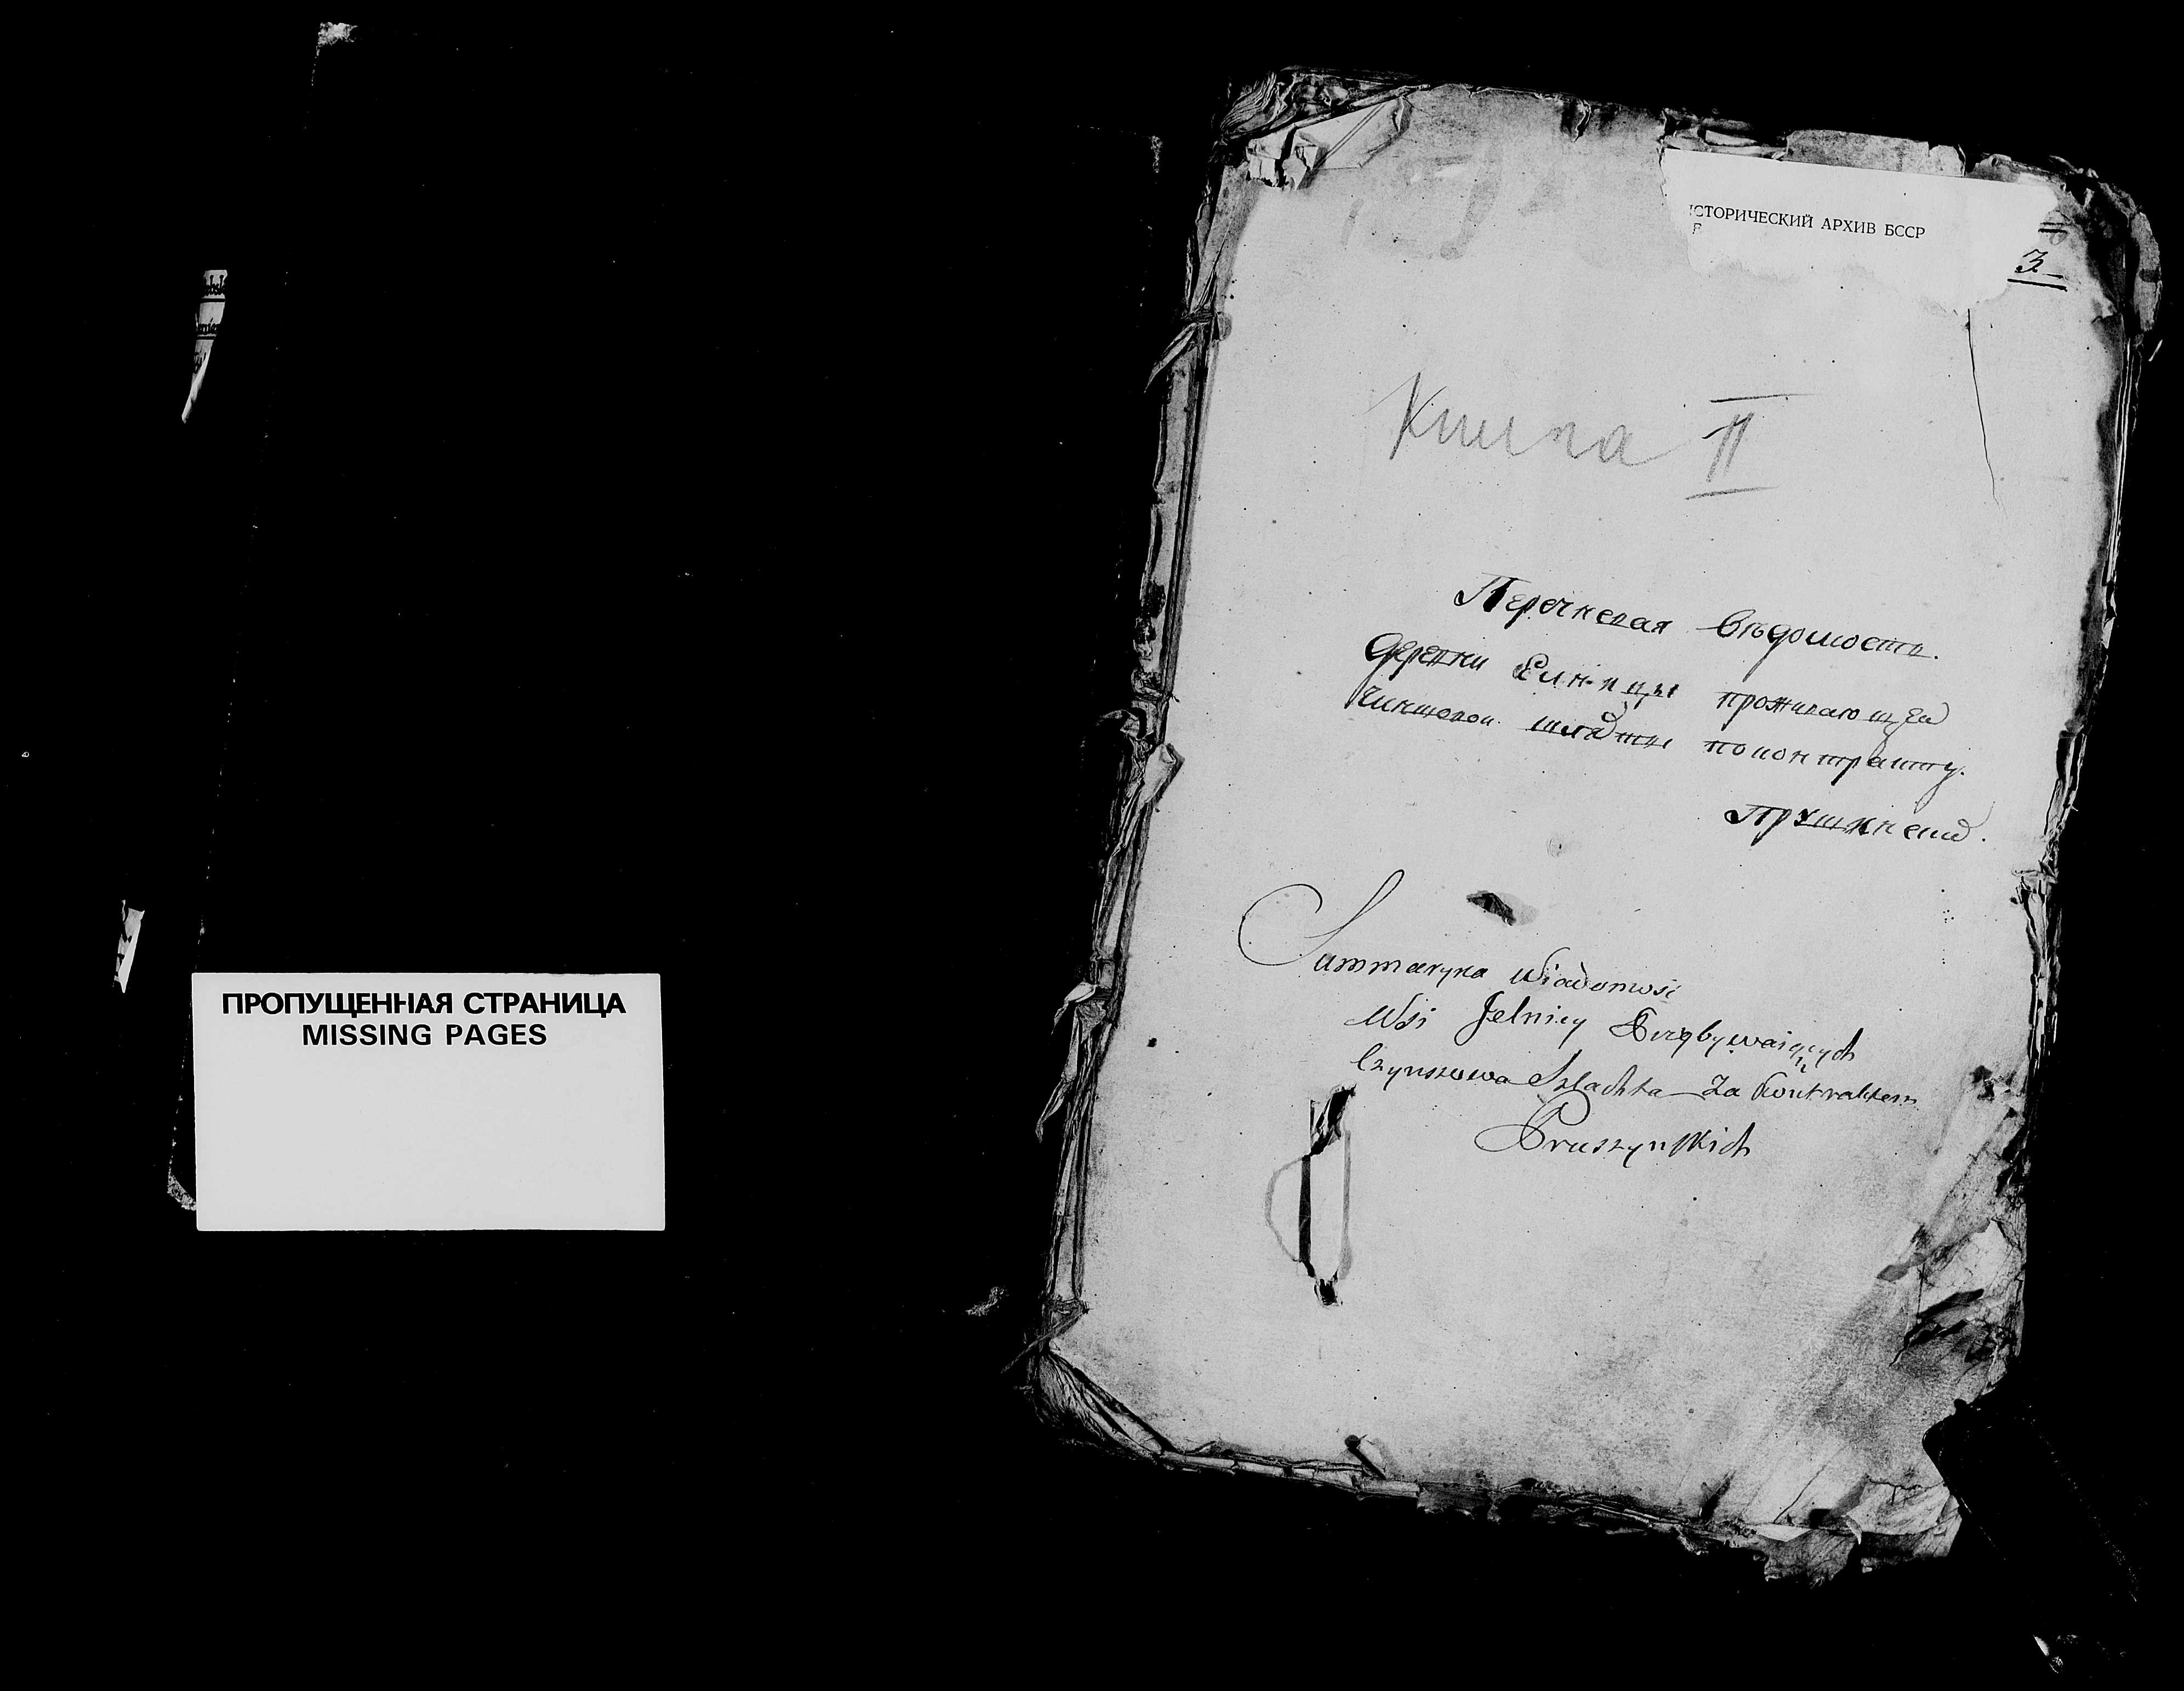 ПРОПУЩЕННАЯ СТРАНИЦА
MISSING PAGES
ИСТОРИЧЕСКИЙ АРХИВ БССР
3
Книга II
Перечневая вѣдомость.
Деревни Елницы проживающей
Чиншевой шляхты поконтракту.
Summaryna Wiadomość
Wsi Jelnicy Przybywaiących
Czynszowa Szlachta Za Kontraktem
Pruszynskich